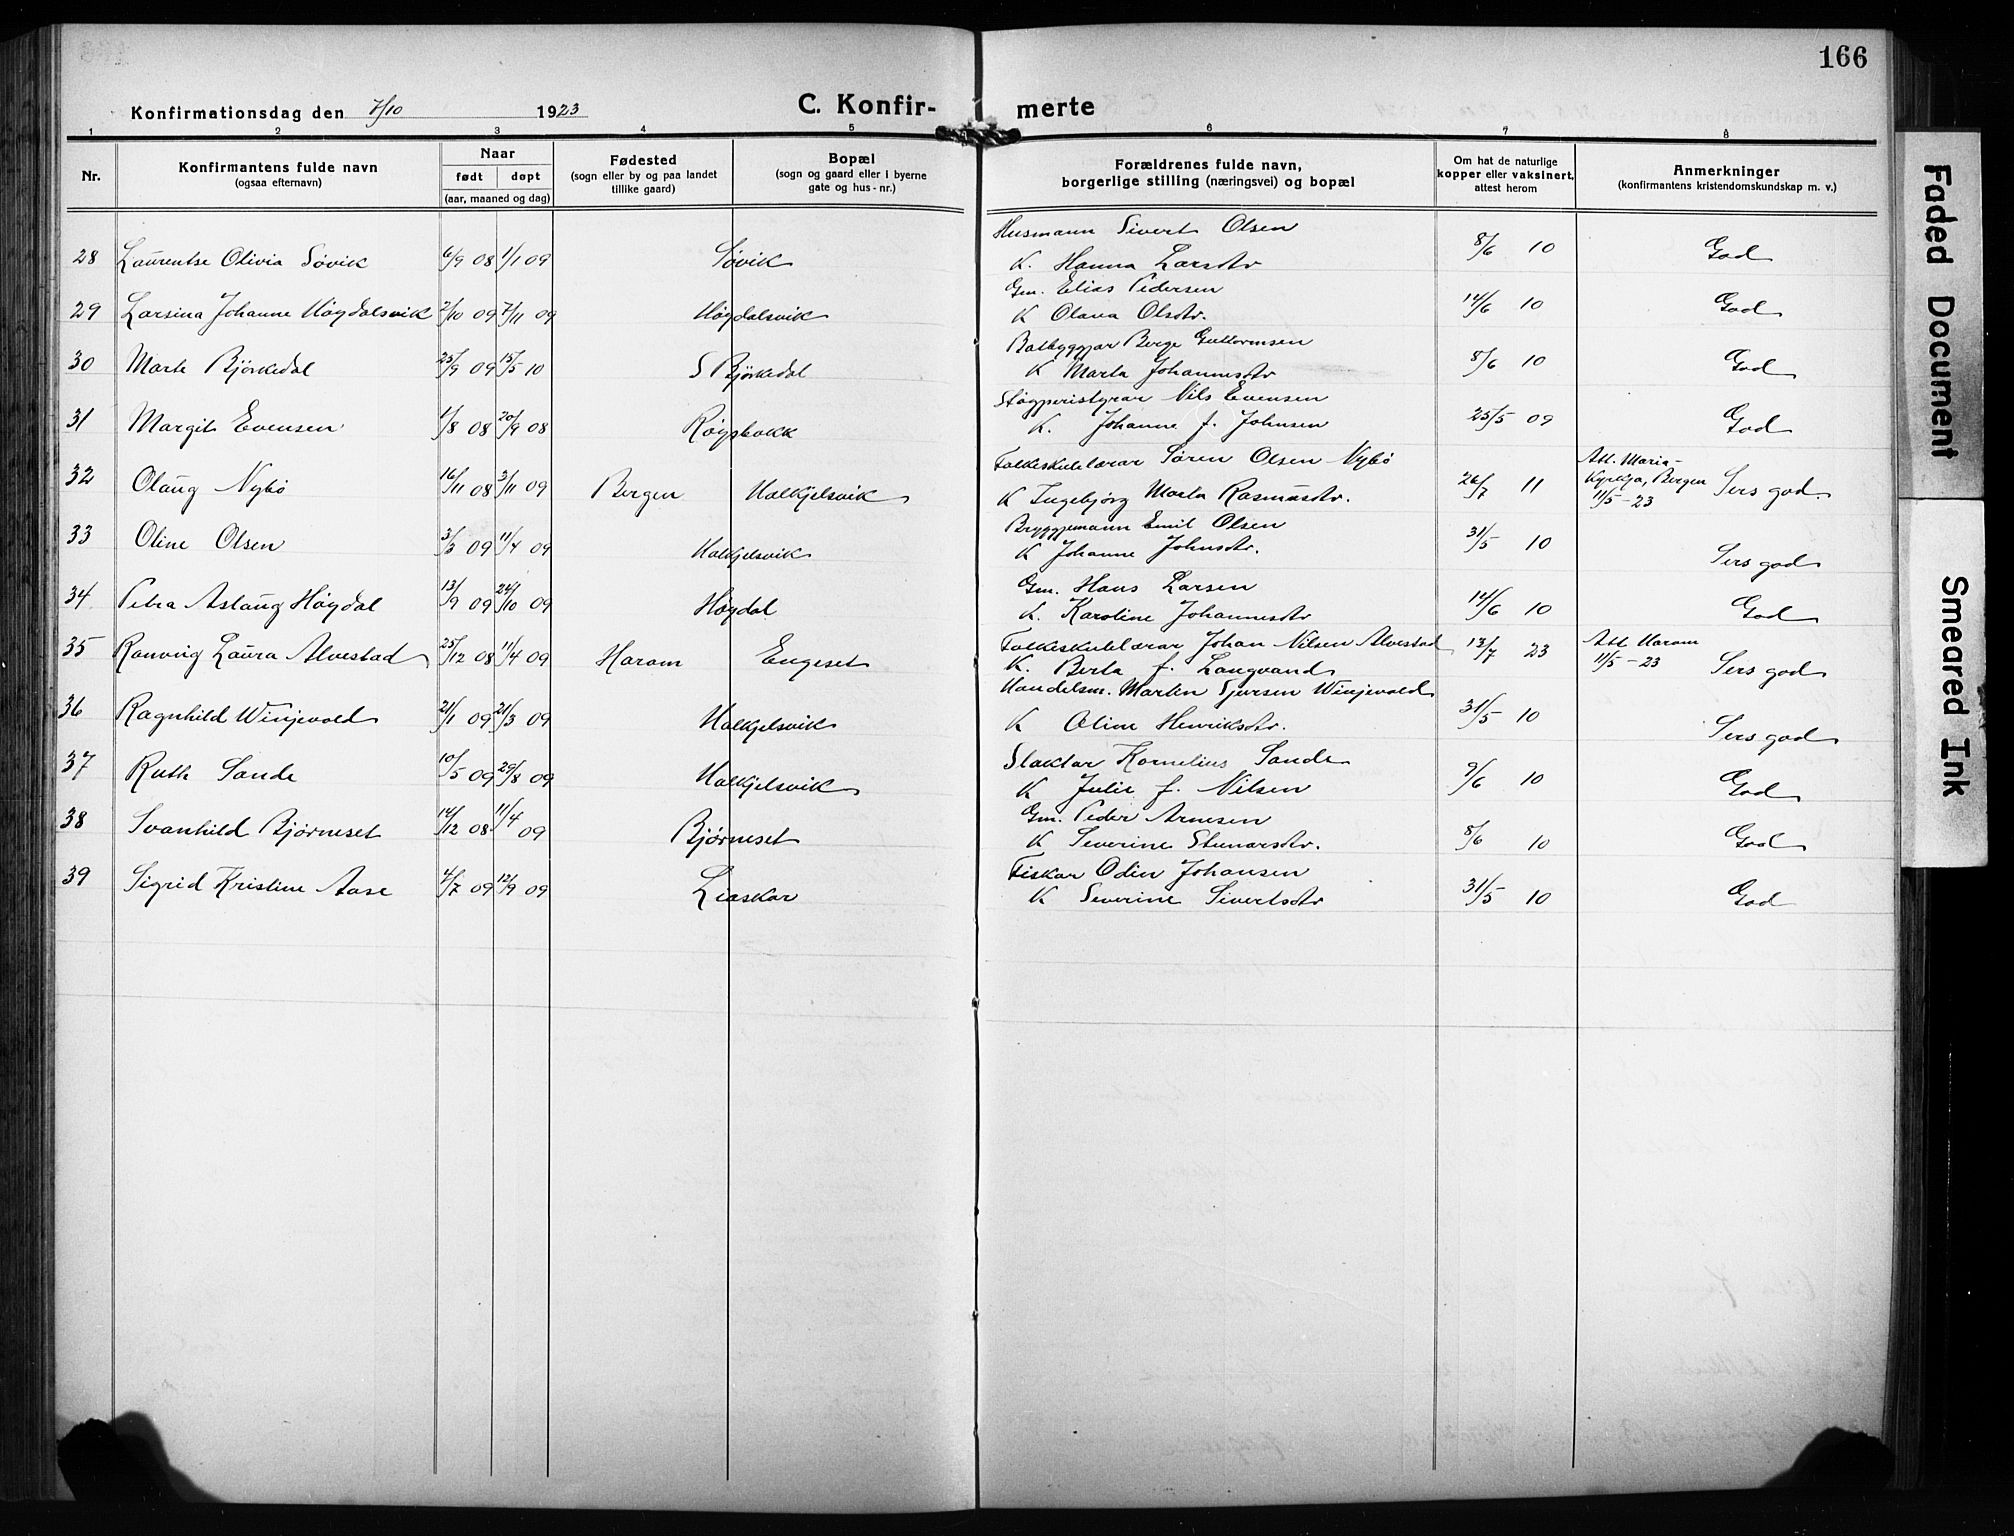 166
Konfirmationsdag den 7/10 1923
C. Konfir- merte
1 2 3 4 5 6 7 8
Nr.
Konfirmantens fulde navn
(ogsaa efternavn)
Naar
født døpt
(aar, maaned og dag)
Fødested
(sogn eller by og paa landet
tillike gaard)
Bopæl
(sogn og gaard eller i byerne
gate og hus-nr.)
Forældrenes fulde navn,
borgerlige stilling (næringsvei) og bopæl
Om hat de naturlige
kopper eller vaksinert,
attest herom
Anmerkninger
(konfirmantens kristendomskundskap m. v.)
Husmann Sivert Olsen
28 Laurentse Olivia Søvik 6/9 08 1/1 09 Søvik K. Hanna Larsdtr 8/6 10 God
Gm. Elias Pedersen
29 Larsina Johanne Høgdalsvik 2/10 09 7/11 09 Høgdalsvik K Olava Olsdtr. 14/6 10 God
Batbyggjar Berge Guttormsen
30 Marta Bjørkedal 25/9 09 15/5 10 S Bjørkedal K Marta Johannesdtr 8/6 10 God
Støyperistyrar Nils Evensen
31 Margit Evensen 1/8 08 20/9 08 Røysbakk K. Johanne f. Johnsen 25/5 09 God
Folkeskulelærar Søren Olsen Nybø
Att. Maria-
Kyrkja, Bergen
11/5-23
32 Olaug Nybø 16/11 08 3/11 09 Bergen Halkjelsvik K Ingebjørg Marta Rasmusdtr. 26/7 11 Sers god.
Bryggjemann Emil Olsen
33 Oline Olsen 3/3 09 11/4 09 Halkjelsvik K Johanne Johnsdtr. 31/5 10 Sers god
Gm. Hans Larsen
34 Petra Aslaug Høydal 13/9 09 24/10 09 Høydal K. Karoline Johannesdtr 14/6 10 God
Folkeskulelærar Johan Nilsen Alvestad
Att Haram
11/5-23
35 Ranveig Laura Alvestad 25/12 08 11/4 09 Haram Engeset K. Berta f. Langvand 13/7 23 Sers god
Handelsm. Martin Sjursen Winjevold
36 Ragnhild Winjevold 21/1 09 21/3 09 Halkjelsvik K Oline Henriksdtr. 31/5 10 Sers god
Slaktar Kornelius Sande
37 Ruth Sande 10/5 09 29/8 09 Halkjelsvik K Julie f. Nilsen 9/6 10 God
Gm. Peder Arnesen
38 Svanhild Bjørneset 14/12 08 11/4 09 Bjørneset K Severine Steinarsdtr. 8/6 10 God
Fiskar Odin Johansen
39 Sigrid Kristine Aase 4/7 09 12/9 09 Liaskar K Severine Sivertsdtr 31/5 10 God
Faded Document
Smeared Ink